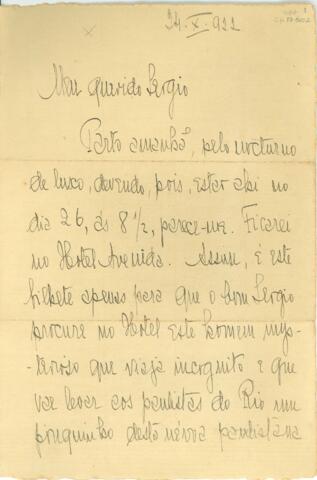 24.X.922
Meu querido Sergio
Parto amanhã, pelo nocturno
de luxo, devendo, pois, estar ahi no
dia 26, ás 8 1/2, parece-me. Ficarei
no Hotel Avenida. Assim, é este
bilhete apenas para que o bom Sergio
procure no Hotel este homem mys-
-terioso que viaja incognito e que
vae levar aos paulistas do Rio um
pouquinho desta névoa paulistana